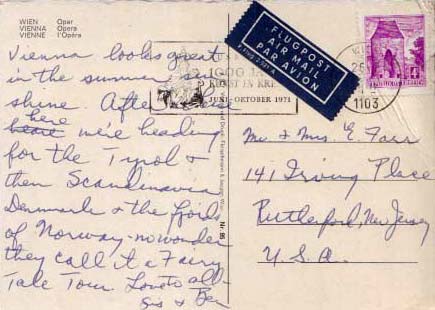 WIEN Oper
VIENNA Opera
VIENNE l'Opéra
Vienna looks great
in the summer sun
shine. After
here we're heading
for the Tyrol &
then Scandinavia
Denmark & the fjords
of Norway - no wonder
they call it a Fairy
Tale Tour. Love to all -
Sis & Ben
FLUGPOST
AIR MAIL
PAR AVION
1000 JAHRE
KUNST IN KREMS
JUNI - OKTOBER 1971
1103
Mr & Mrs E. Farr
141 Irving Place
Rutherford, New Jersey
U.S.A.